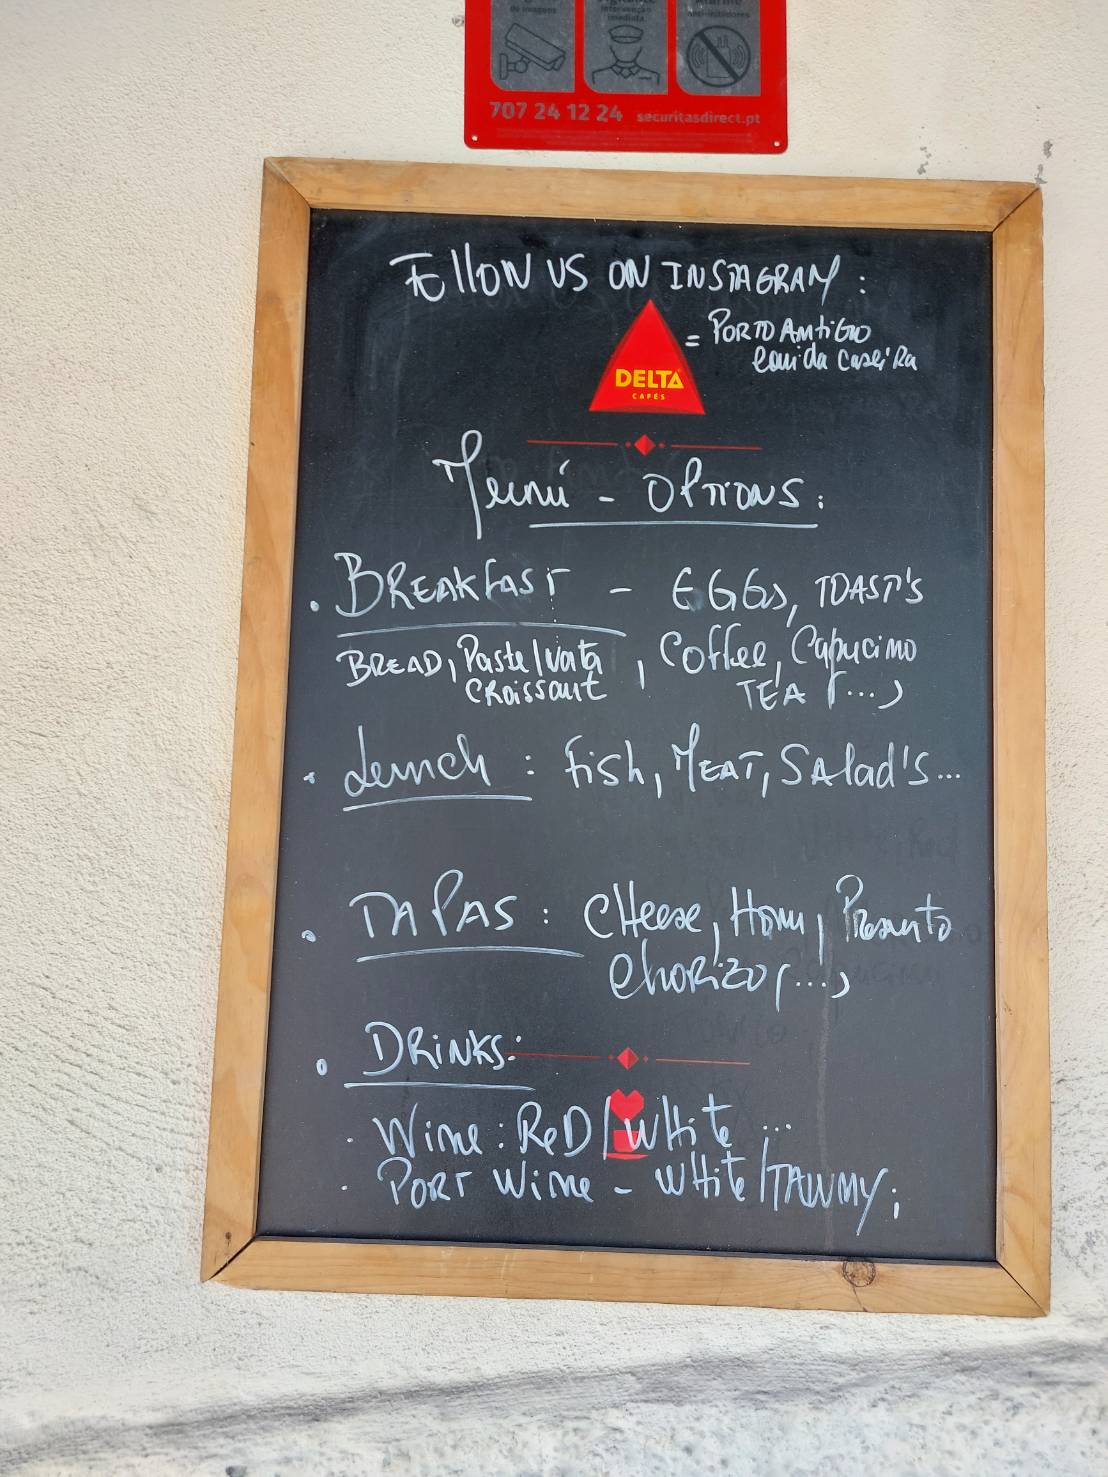 de imagens
intervenção
imediata
anti-inibidores
707 24 12 24 securitasdirect.pt
FOllOW US ON INSTAGRAM :
= PORTO AntiGO
comida caseiRa
DELTA
CAFÉS
Menú - OPTIONS :
. BREAKfAST - EGGs, TOAST'S
BREAD, Pastel Nata , Coffee, Capucino
CRoissant TEA (...)
. Lunch : fish, MEAT, SAlad's ...
. TAPAS : CHeese, Ham, Presunto
ChoRizo (...)
. DRiNKS :
. Wine : ReD / WHite ...
. PORT Wine - WHite / TAWNY ;